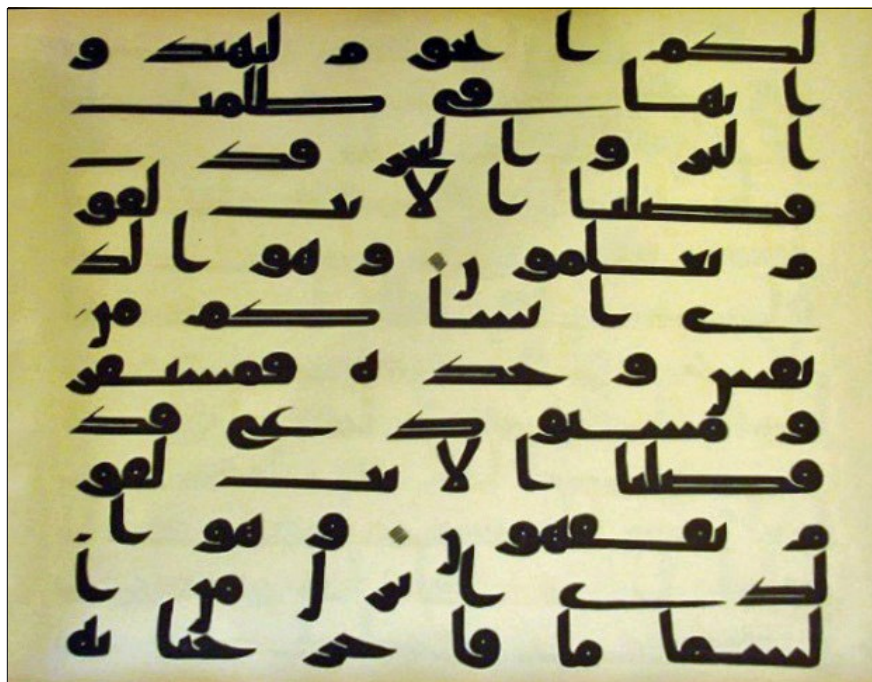 لكم النجو م لتهتد و
ا بها في ظلمت
البر و البحر قد
فصلنا الايت لقو
م يعلمون و هو الذ
ي انشا كم من
نفس و حد ة فمستقر
و مستود ع قد
فصلنا الايت لقو
م يفقهون و هو ا
لذي انزل من ا
لسما ما فا خر جنا به